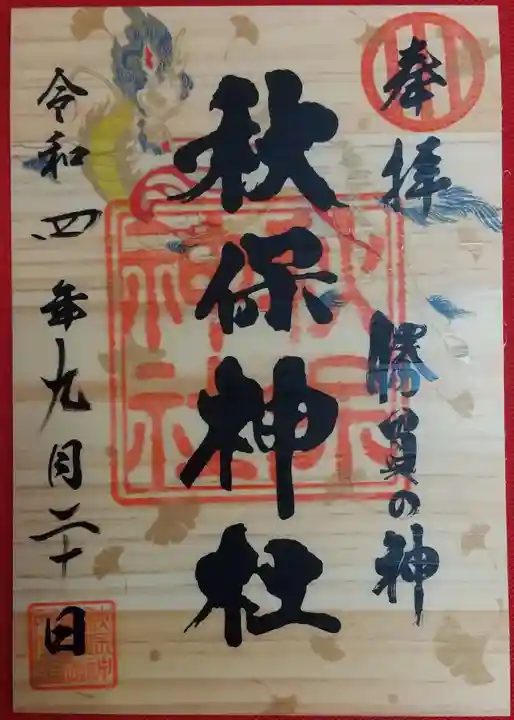 奉拝
勝負の神
秋保神社
秋保神社
令和四年九月二十日